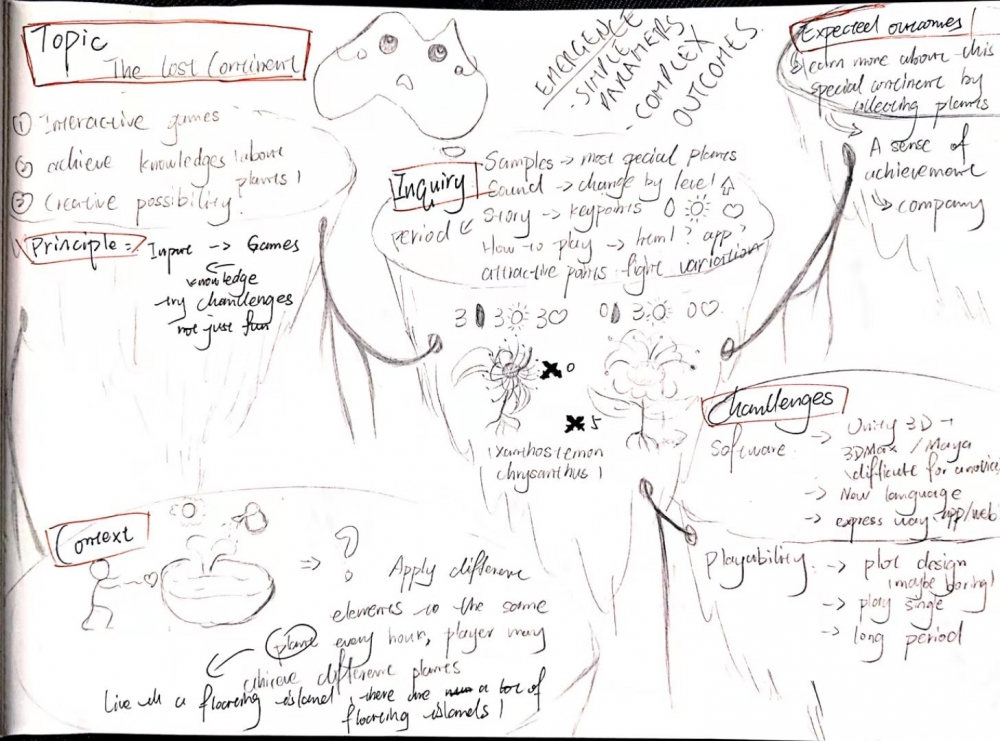 Topic
The Lost Continent
① Interactive games
② achieve knowledges (about
plants)
③ Creative possibility.
Principle:
Input → Games
knowledge
try challenges
not just fun
EMERGENCE
- SIMPLE
PARAMERS
- COMPLEX
OUTCOMES.
Inquiry
Samples → most special plants
Sound → change by level
Story → keypoints
period
How to play → html? app?
attractive points - fight variation
3 3 3 0 3 0
× 0
× 5
(Xanthostemon
chrysanthus)
Expected outcomes
learn more about this
special continent by
collecting plants
A sense of
achievement
company
Challenges
Software → Unity 3D
3DMax / Maya
difficult for
→ New language
→ express way - app/web
Playability → plot design
(maybe boring)
→ play
→ long period
Context
⇒ ?
Apply different
elements to the same
plant every hour, player may
achieve different plants
Live in a floating island, there are a lot of
floating islands!